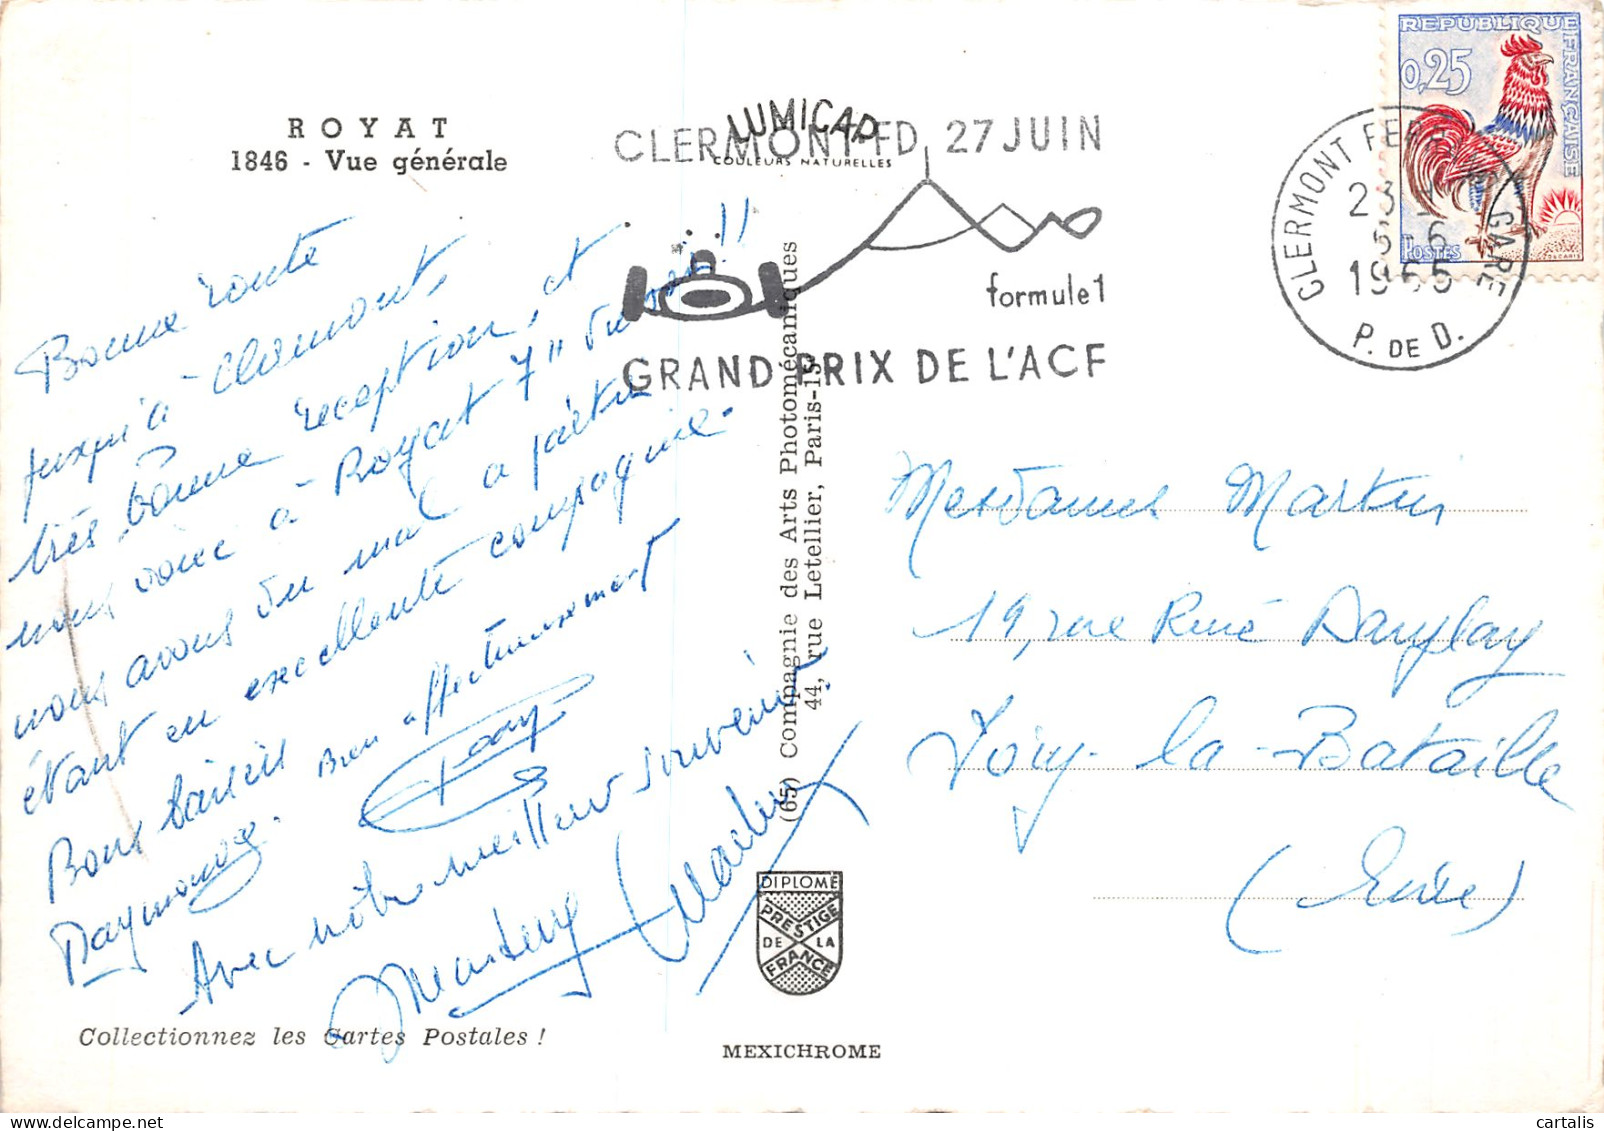 ROYAT
1846 - Vue générale
Bonne route
jusqu'à Clermont,
très bonne réception, et
nous voici à Royat 7" du soir !!
nous avons du mal à partir
étant en excellente compagnie.
Bons baisers
Raymonde.
Bien affectueusement
Avec notre meilleur souvenir
Collectionnez les Cartes Postales !
LUMICAP
COULEURS NATURELLES
CLERMONT-FD 27 JUIN
formule 1
GRAND PRIX DE L'ACF
(65) Compagnie des Arts Photomécaniques
44, rue Letellier, Paris-15
DIPLOME
PRESTIGE
DE LA
FRANCE
MEXICHROME
REPUBLIQUE FRANÇAISE
0,25
POSTES
DECARIS
CLERMONT FERRAND GARE
23 H
5-6
1965
P. DE D.
Mesdames Martin
19, rue René Danglay
Ivry-la-Bataille
(Eure)
cartalis